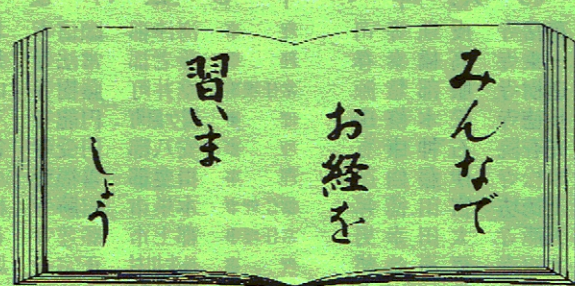 みんなで
お経を
習いま
しょう